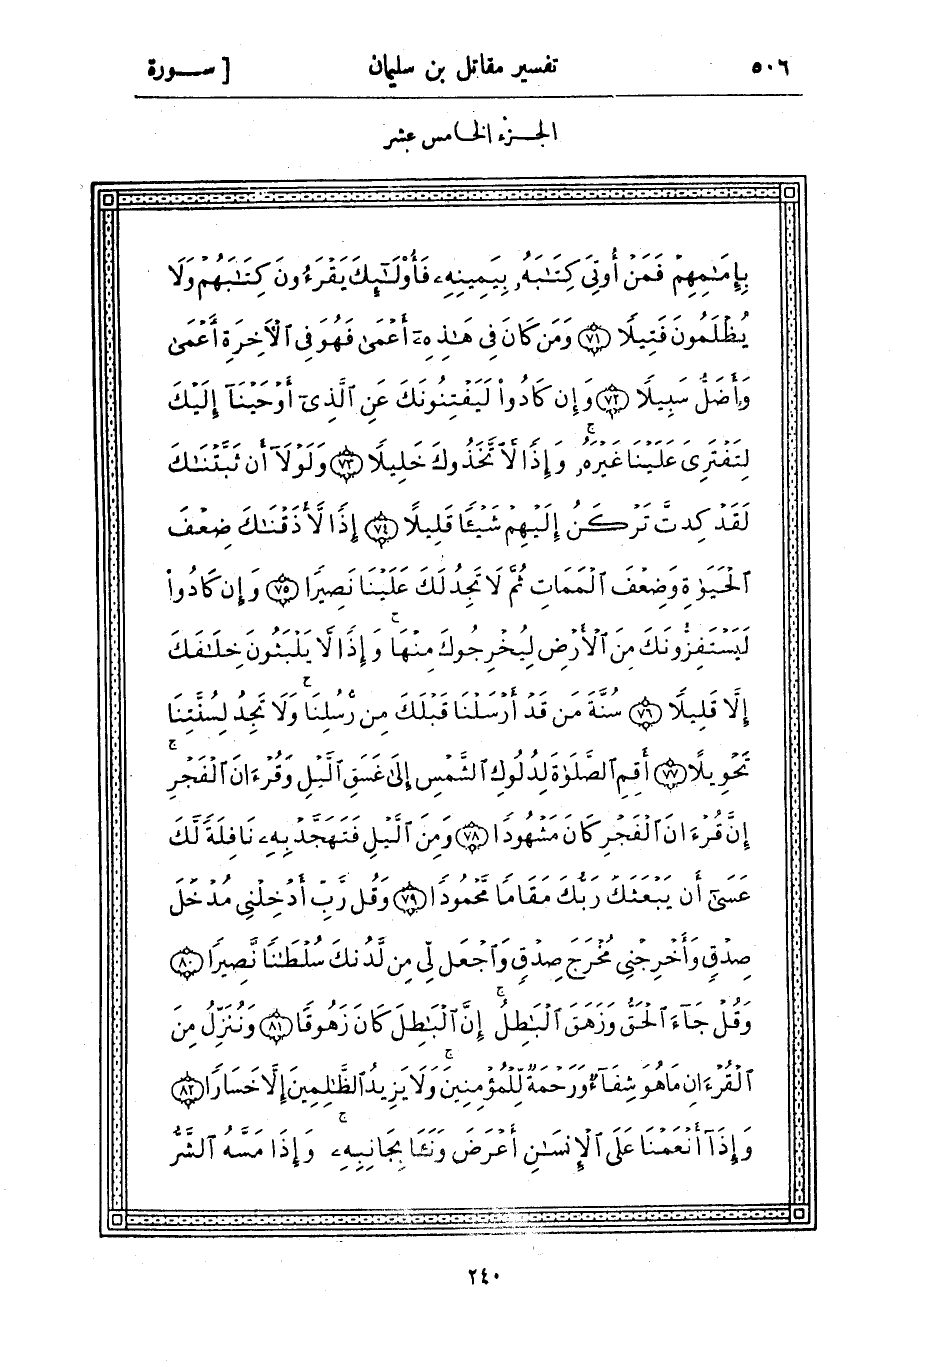 ٥٠٦ تفسير مقاتل بن سليمان [ سـورة
الجـزء الخامس عشر
بِإِمَـٰمِهِمْ فَمَنْ أُوتِىَ كِتَـٰبَهُۥ بِيَمِينِهِۦ فَأُوْلَـٰٓئِكَ يَقْرَءُونَ كِتَـٰبَهُمْ وَلَا
يُظْلَمُونَ فَتِيلًا ﴿٧١﴾ وَمَن كَانَ فِى هَـٰذِهِۦٓ أَعْمَىٰ فَهُوَ فِى ٱلْأَخِرَةِ أَعْمَىٰ
وَأَضَلُّ سَبِيلًا ﴿٧٢﴾ وَإِن كَادُواْ لَيَفْتِنُونَكَ عَنِ ٱلَّذِىٓ أَوْحَيْنَآ إِلَيْكَ
لِتَفْتَرِىَ عَلَيْنَا غَيْرَهُۥ ۚ وَإِذًا لَّا تَّخَذُوكَ خَلِيلًا ﴿٧٣﴾ وَلَوْلَآ أَن ثَبَّتْنَـٰكَ
لَقَدْ كِدتَّ تَرْكَنُ إِلَيْهِمْ شَيْـًٔا قَلِيلًا ﴿٧٤﴾ إِذًا لَّأَذَقْنَـٰكَ ضِعْفَ
ٱلْحَيَوٰةِ وَضِعْفَ ٱلْمَمَاتِ ثُمَّ لَا تَجِدُ لَكَ عَلَيْنَا نَصِيرًا ﴿٧٥﴾ وَإِن كَادُواْ
لَيَسْتَفِزُّونَكَ مِنَ ٱلْأَرْضِ لِيُخْرِجُوكَ مِنْهَا ۚ وَإِذًا لَّا يَلْبَثُونَ خِلَـٰفَكَ
إِلَّا قَلِيلًا ﴿٧٦﴾ سُنَّةَ مَن قَدْ أَرْسَلْنَا قَبْلَكَ مِن رُّسُلِنَا ۚ وَلَا تَجِدُ لِسُنَّتِنَا
تَحْوِيلًا ﴿٧٧﴾ أَقِمِ ٱلصَّلَوٰةَ لِدُلُوكِ ٱلشَّمْسِ إِلَىٰ غَسَقِ ٱلَّيْلِ وَقُرْءَانَ ٱلْفَجْرِ ۚ
إِنَّ قُرْءَانَ ٱلْفَجْرِ كَانَ مَشْهُودًا ﴿٧٨﴾ وَمِنَ ٱلَّيْلِ فَتَهَجَّدْ بِهِۦ نَافِلَةً لَّكَ
عَسَىٰٓ أَن يَبْعَثَكَ رَبُّكَ مَقَامًا مَّحْمُودًا ﴿٧٩﴾ وَقُل رَّبِّ أَدْخِلْنِى مُدْخَلَ
صِدْقٍ وَأَخْرِجْنِى مُخْرَجَ صِدْقٍ وَٱجْعَل لِّى مِن لَّدُنكَ سُلْطَـٰنًا نَّصِيرًا ﴿٨٠﴾
وَقُلْ جَآءَ ٱلْحَقُّ وَزَهَقَ ٱلْبَـٰطِلُ ۚ إِنَّ ٱلْبَـٰطِلَ كَانَ زَهُوقًا ﴿٨١﴾ وَنُنَزِّلُ مِنَ
ٱلْقُرْءَانِ مَا هُوَ شِفَآءٌ وَرَحْمَةٌ لِّلْمُؤْمِنِينَ ۚ وَلَا يَزِيدُ ٱلظَّـٰلِمِينَ إِلَّا خَسَارًا ﴿٨٢﴾
وَإِذَآ أَنْعَمْنَا عَلَى ٱلْإِنسَـٰنِ أَعْرَضَ وَنَـَٔا بِجَانِبِهِۦ ۚ وَإِذَا مَسَّهُ ٱلشَّرُّ
٢٤٠